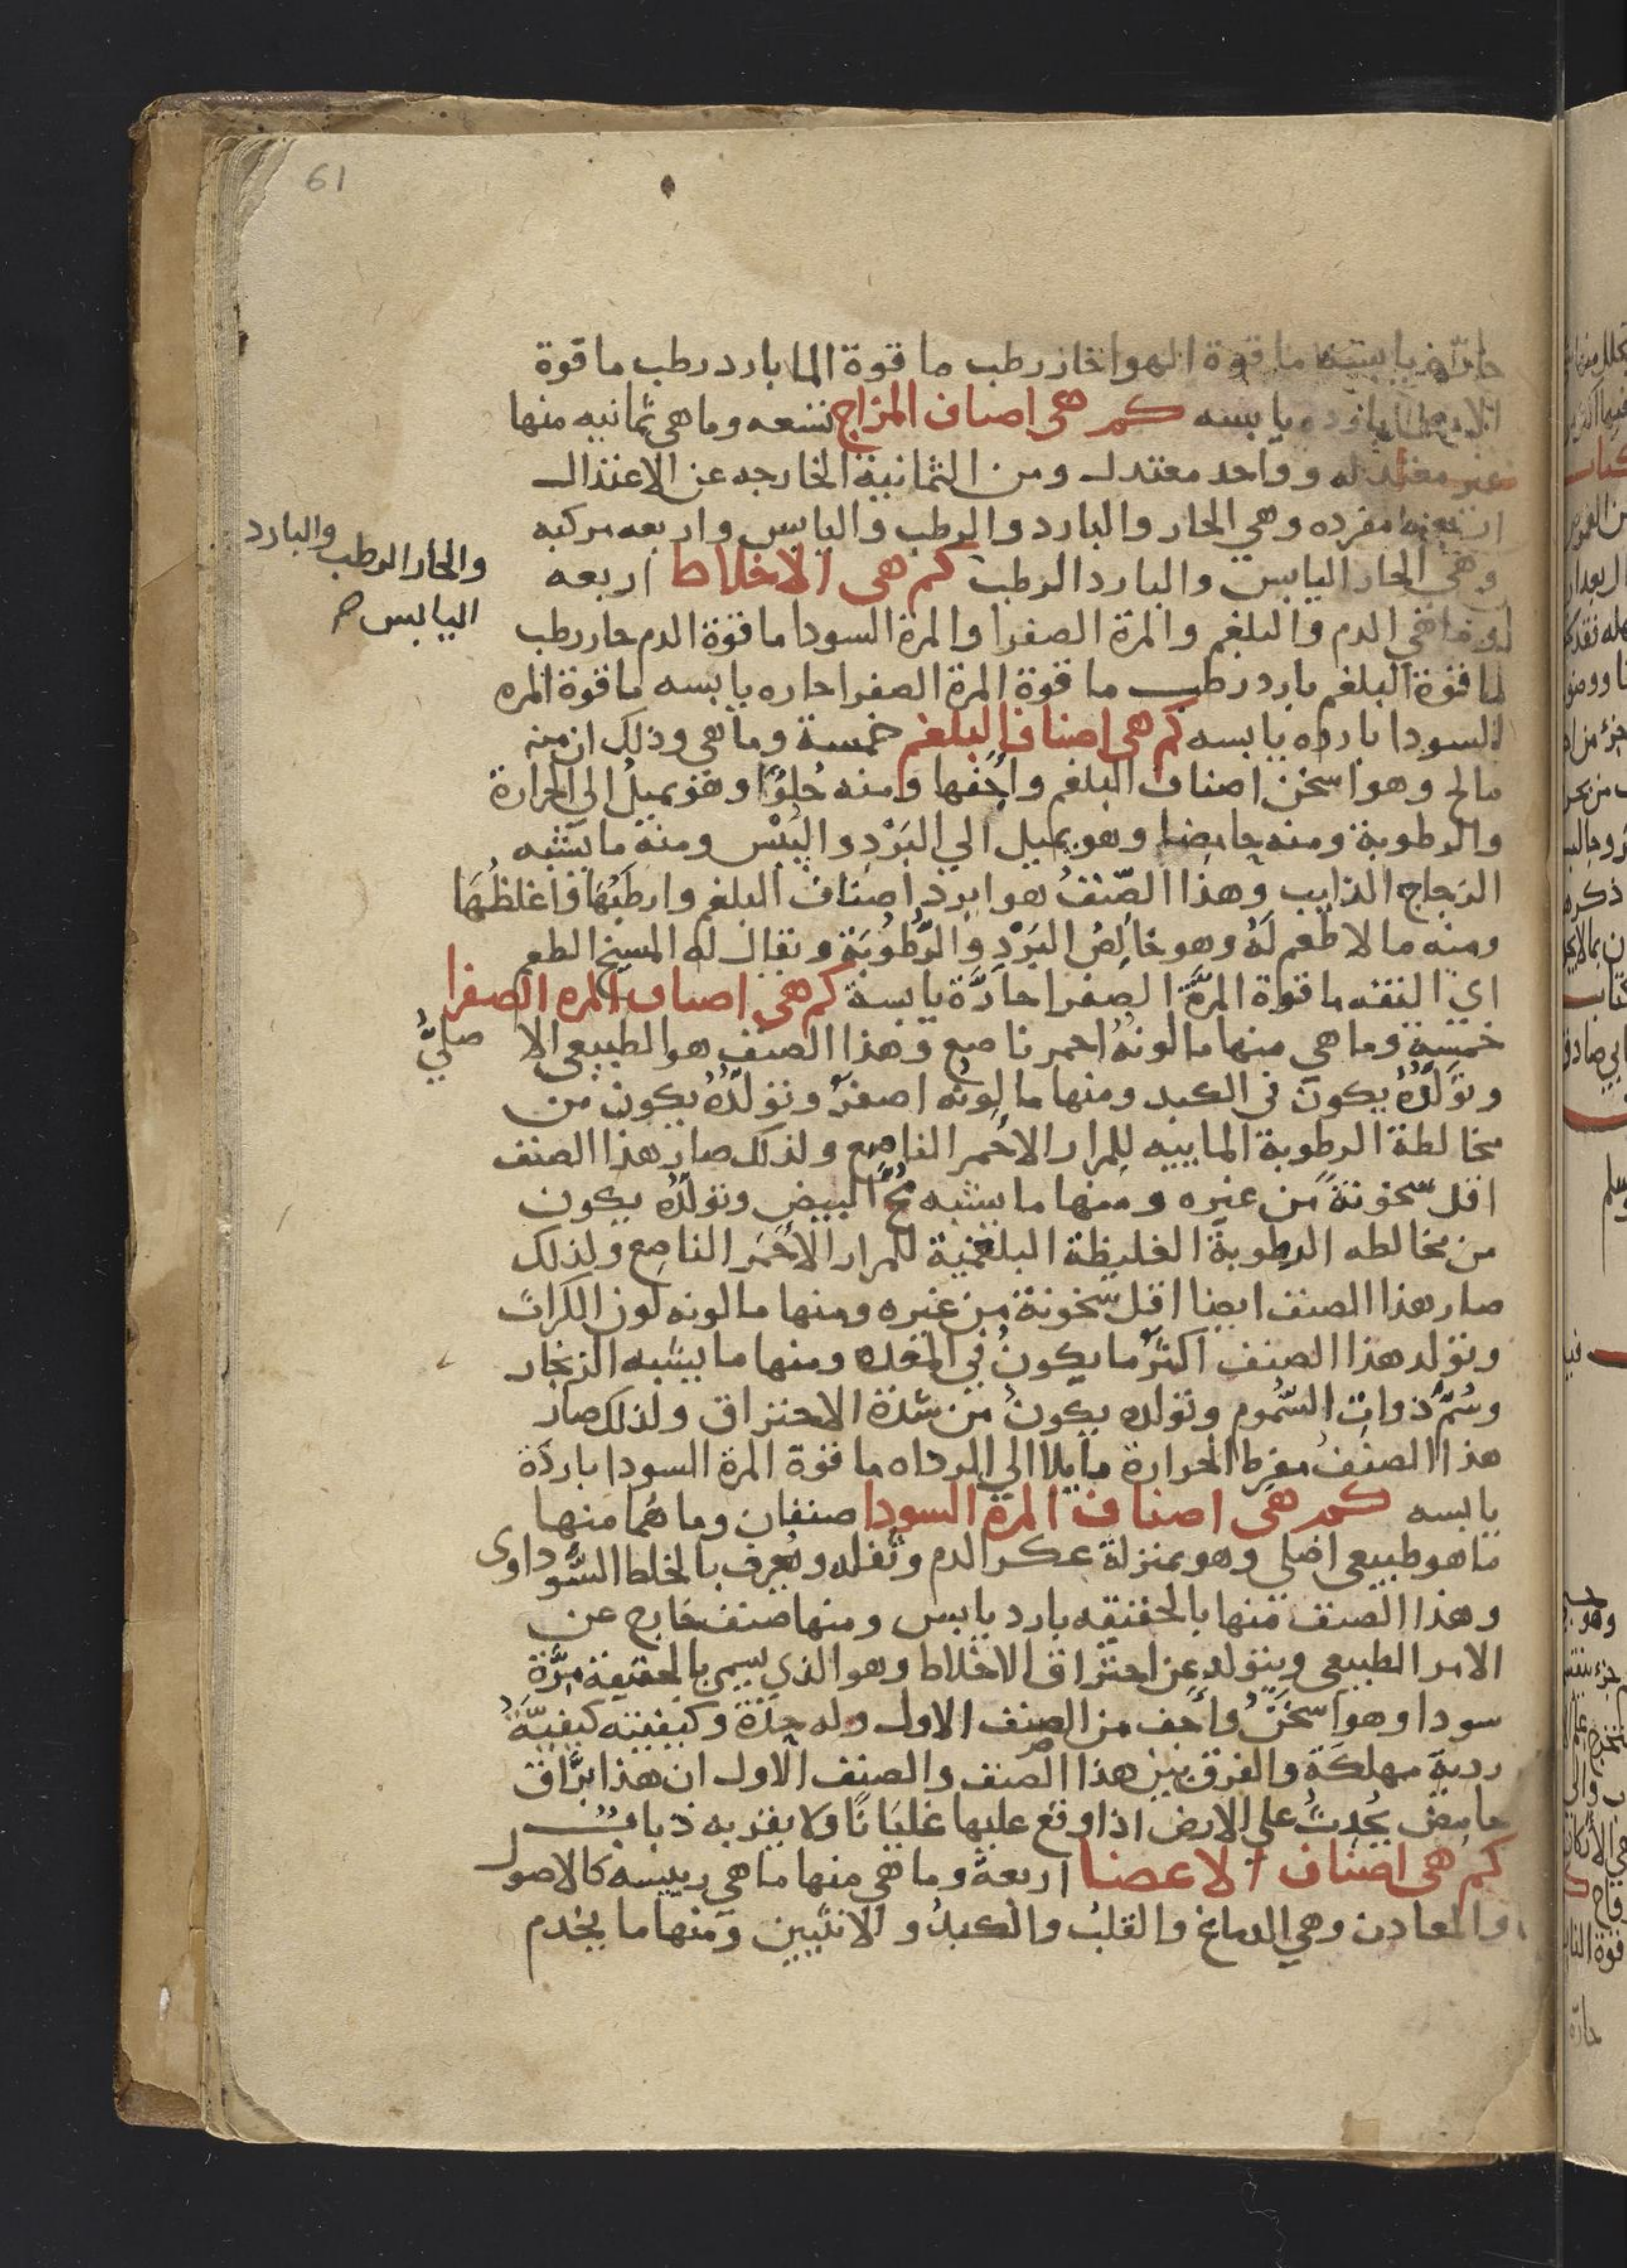 61
حارة يابسة ما قوة الهوا حار رطب ما قوة الما بارد رطب ما قوة
الارض بارده يابسه كم هى اصناف المزاج تسعه وما هى ثمانيه منها
غير معتدله وواحد معتدل ومن الثمانية الخارجه عن الاعتدال
اربعة مفرده وهي الحار والبارد والرطب واليابس واربعه مركبه
وهي الحار اليابس والبارد الرطب كم هى الاخلاط اربعه
والحار الرطب والبارد
اليابس
وما هي الدم والبلغم والمرة الصفرا والمرة السودا ما قوة الدم حار رطب
ما قوة البلغم بارد رطب ما قوة المرة الصفرا حاره يابسه ما قوة المره
السودا بارده يابسه كم هى اصناف البلغم خمسة وما هي وذلك ان منه
مالح وهو اسخن اصناف البلغم واجفها ومنه حُلوًا وهو يميلُ الي الحرارة
والرطوبة ومنه حامضا وهو يميل الي البَرْدِ واليُبْس ومنه ما يشبه
الزجاج الذايب وهذا الصّنفُ هو ابرد اصناف البلغم وارطَبُهَا واغلظُهَا
ومنه ما لا طعم لَهُ وهو خالِصُ البَرْدِ والرُّطُوبَة ويقال له المسيخ الطعم
اي التفه ما قوة المرَّة الصفرا حارَّة يابسة كم هى اصناف المره الصفرا
خمسة وما هي منها ما لونُهُ احمر ناصع وهذا الصنف هو الطبيعى الا صليُّ
وتولّدُهُ يكون في الكبد ومنها ما لونُه اصفرُ وتولّدُهُ يكون من
مخالطة الرطوبة الماييه للمرار الاحمر الناصع ولذلك صار هذا الصنف
اقل سخونةً من غيره ومنها ما يشبه مُحَّ البيض وتولّدُه يكون
من مخالطه الرطوبة الغليظة البلغمية للمرار الاحمَر الناصع ولذلك
صار هذا الصنف ايضا اقل سخونة من غيره ومنها ما لونه لون الكراث
وتولد هذا الصنف اكثرُ ما يكونُ في المعده ومنها ما يشبه الزنجار
وسُمَّ ذوات السُّموم وتولده يكونُ من شدة الاحتراق ولذلك صار
هذا الصنفُ مفرط الحرارة مايلا الي الرداه ما قوة المرة السودا باردَة
يابسه كم هى اصناف المرة السودا صنفان وما هُما منها
ما هو طبيعى اصلي وهو بمنزلة عكر الدم وثُفله ويُعرف بالخلط السَّوداوى
وهذا الصنف منها بالحقيقه بارد يابس ومنها صنف خارج عن
الامر الطبيعى ويتولد عن احتراق الاخلاط وهو الذي يسمى بالحقيقة مِرَّة
سودا وهو اسخَنُ واجَف من الصنف الاول وله حِدَّة وكيفيته كيفيّةُ
ردية مهلكَة والفرق بين هذا الصنف والصنف الاول ان هذا برَّاق
حامِض يُحدِثُ علي الارض اذا وقع عليها غليَانًا ولا يقربه ذبابُ
كم هى اصناف الاعضا اربعة وما هي منها ما هي رييسه كالاصول
والمعادن وهي الدماغ والقلبُ والكبدُ والانثيين ومنها ما يخدم